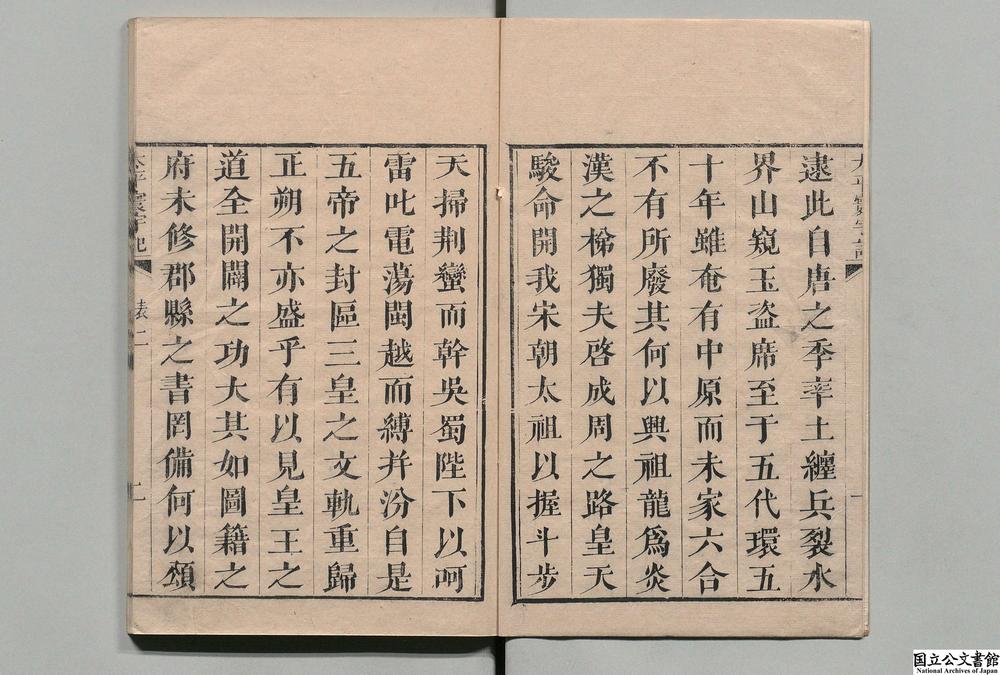 逮此自唐之季率土纏兵裂水
界山窺玉盗席至于五代環五
十年雖奄有中原而未家六合
不有所廢其何以興祖龍爲炎
漢之梯獨夫啓成周之路皇天
駿命開我宋朝太祖以握斗步
天掃荆蠻而幹吳蜀陛下以呵
雷叱電蕩閩越而縛并汾自是
五帝之封區三皇之文軌重歸
正朔不亦盛乎有以見皇王之
道全開闢之功大其如圖籍之
府未修郡縣之書罔備何以頌
表
二
国立公文書館
National Archives of Japan